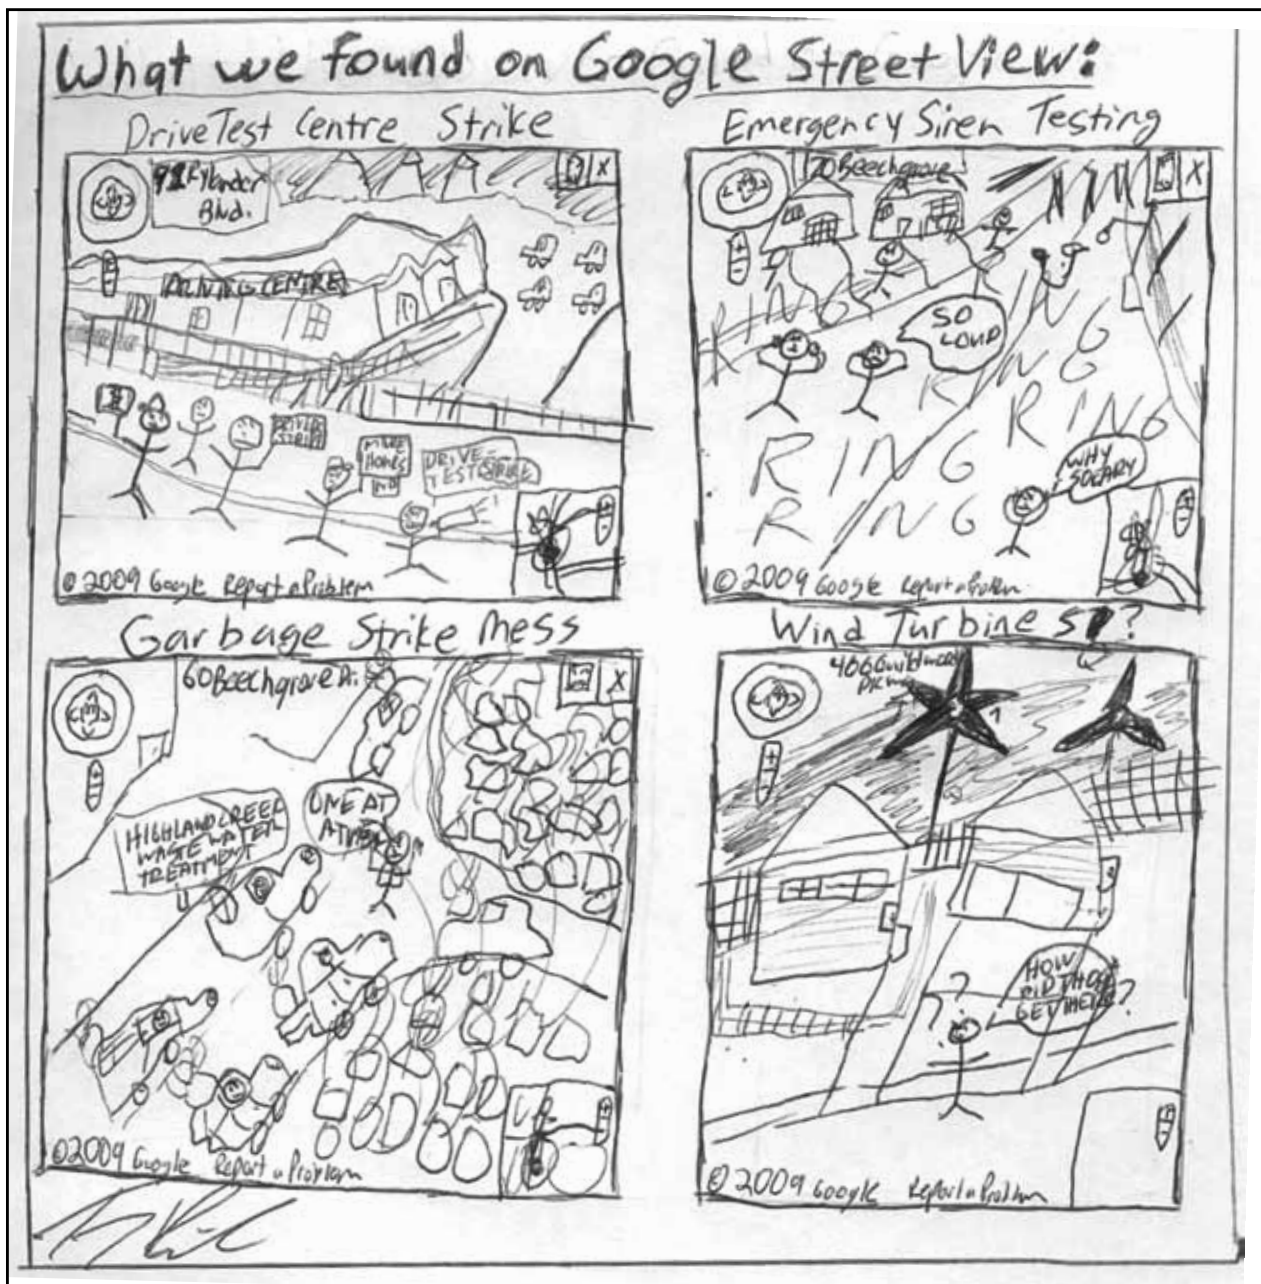 What we found on Google Street View:
DriveTest Centre Strike
Rylander
Blvd.
CENTRE
DRIVER
STRIKE
MORE
DRIVE-
TEST STRIKE
© 2009 Google Report a Problem
Emergency Siren Testing
70 Beechgrove
RING
SO
LOUD
RING
RING
RING
RING
WHY
SO
© 2009 Google Report a Problem
Garbage Strike Mess
60 Beechgrove Dr.
HIGHLAND CREEK
WASTE WATER
TREATMENT
ONE AT
A
©2009 Google Report a Problem
Wind Turbines?
HOW
DID
GET
© 2009 Google Report a Problem